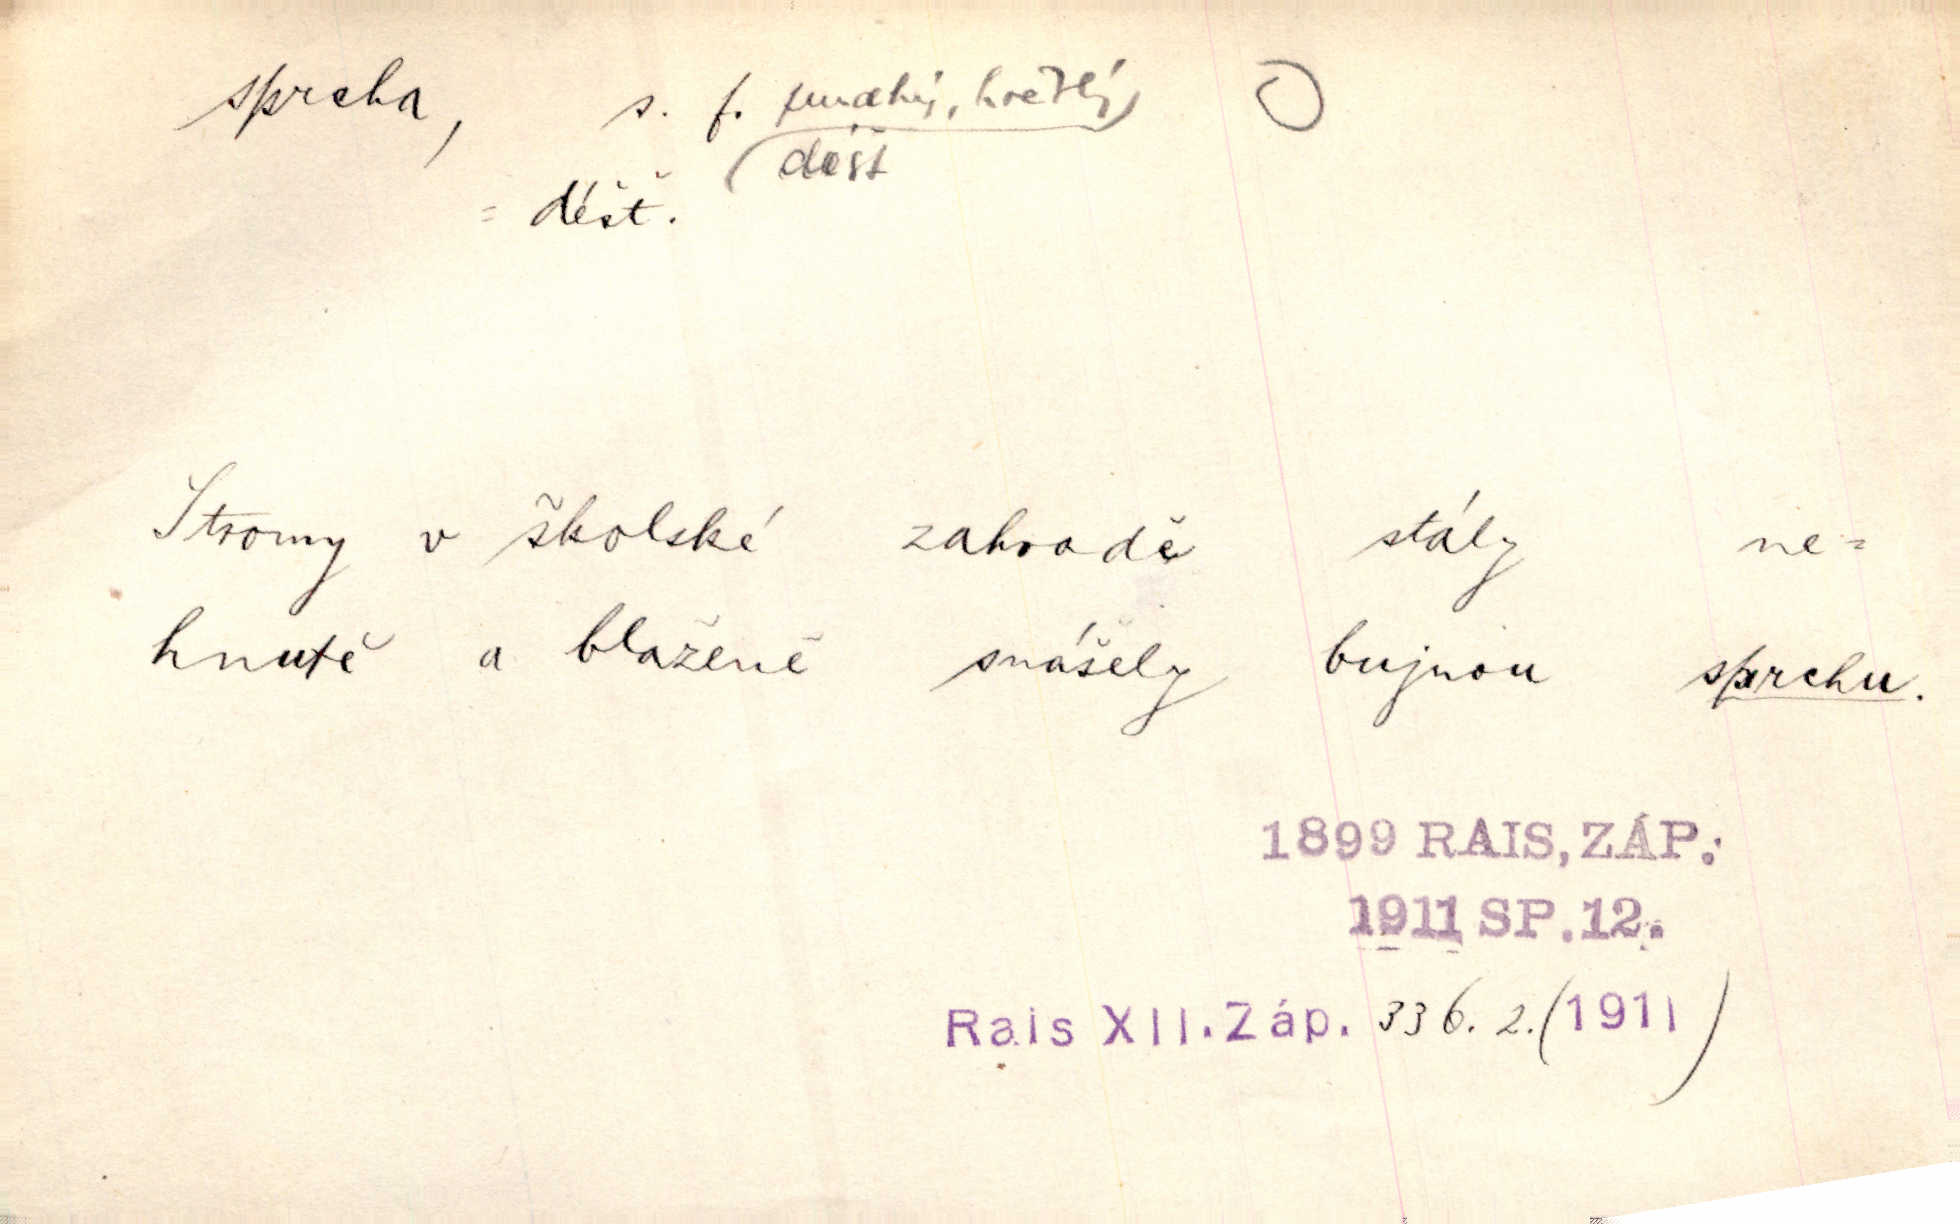 sprcha, s. f. prudký, hustý
déšť
= déšť.
Stromy v školské zahradě stály ne=
hnutě a blaženě snášely bujnou sprchu.
1899 RAIS, ZÁP.:
1911 SP. 12.
Rais XII. Záp. 336. 2. (1911)